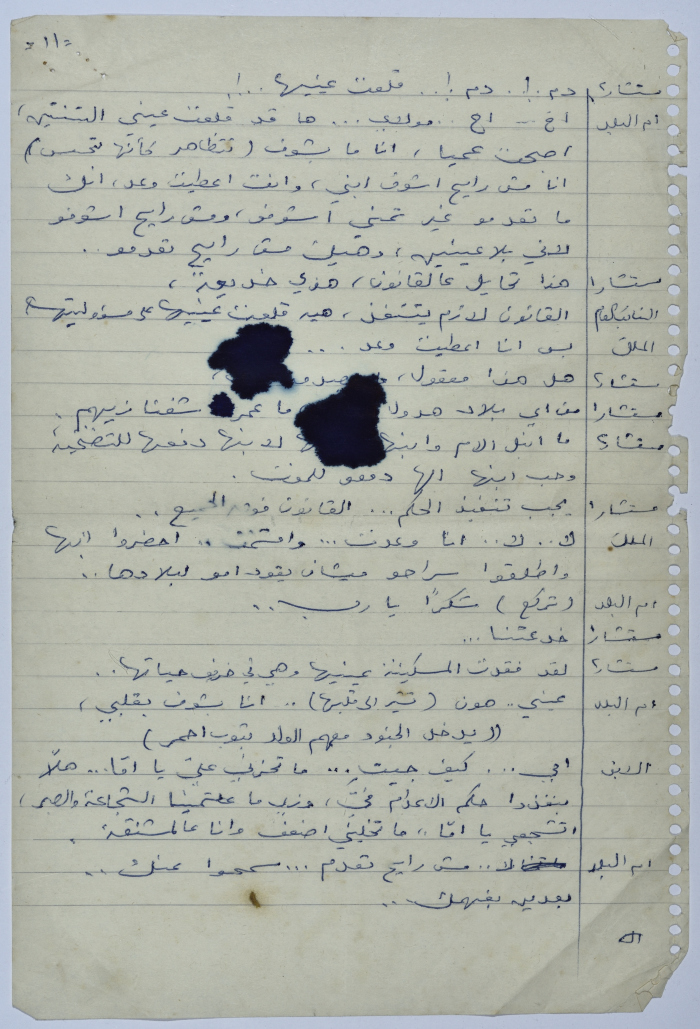 =١١=
مستشار٢ دم..!. دم.!.. قلعت عينيها..!.
ام البلد اخ... اخ... مولاي... ها قد قلعت عيني التنتين،
اصبحت عميا، انا ما بشوف (تتظاهر كأنها تتحسس)
انا مش رايح اشوف ابني، وانت اعطيت وعد، انك
ما تعدمو غير تمني اشوفو، ومش رايح اشوفو
لاني بلا عينين، وهيك مش رايح تعدمو..
مستشار١ هذا تحايل عالقانون، هذي خديعة،
القانون لازم يتنفذ، هيه قلعت عينيها على مسؤوليتها
الملك بس انا اعطيت وعد...
مستشار٢ هل هذا معقول،
مستشار١ من اي بلاد هدول ما عمر شفنا زيهم.
مستشار٢ ما انبل الام وابنها لابنها دفعها للتضحية
وحب ابنها الها دفعو للموت.
مستشار١ يجب تنفيذ الحكم... القانون فوق الجميع..
الملك لا.. لا.. انا وعدت... واقسمت.. احضروا ابنها
واطلقوا سراحو ميشان يقود امو لبلادها..
ام البلد (تركع) شكرًا يا رب..
مستشار١ خدعتنا...
مستشار٢ لقد فقدت المسكينة عينيها وهي في خريف حياتها..
ام البلد عيني.. هون (تشير الى قلبها).. انا بشوف بقلبي،
(يدخل الجنود معهم الولد بثوب احمر)
الابن امي... كيف جيتِ... ما تحزني عليّ يا امّا... هلّأ
بنفذوا حكم الاعدام فيّ، وزي ما علمتينا الشجاعة والصبر،
اتشجعي يا امّا، ما تخليني اضعف وانا عالمشنقة.
ام البلد لا.. مش رايح تعدم... سمحوا عنك..
بعدين بفهمك...